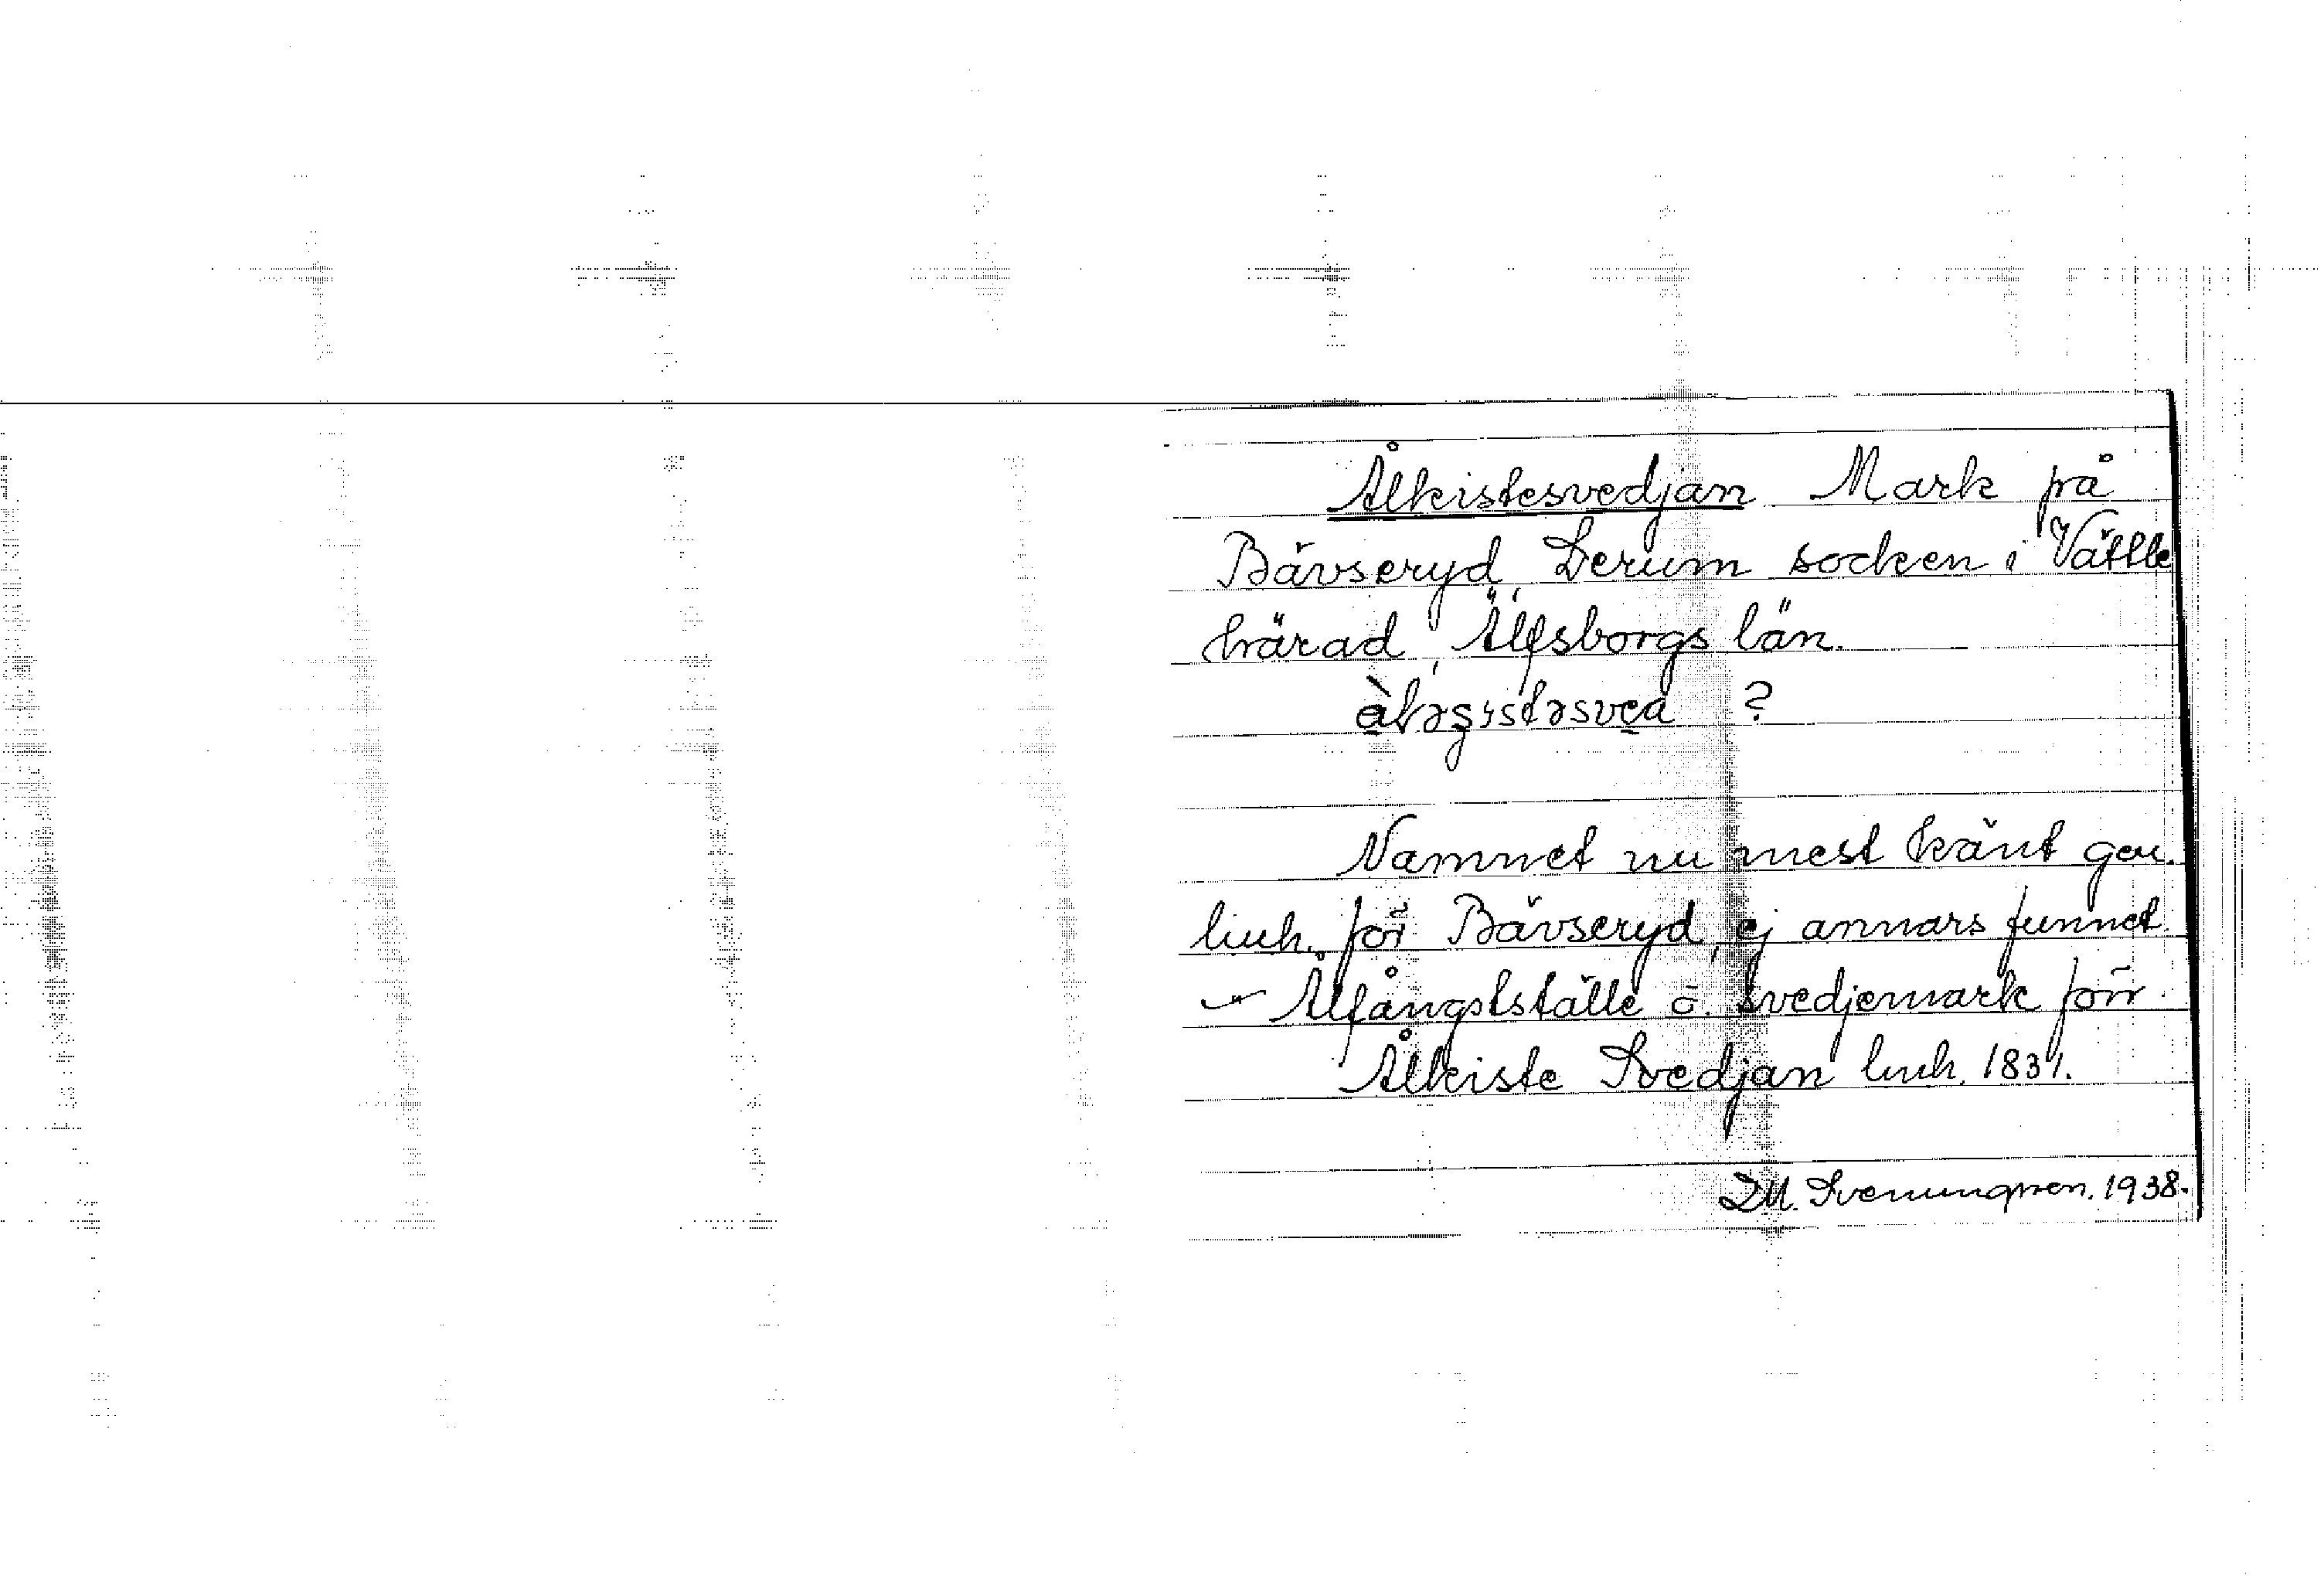 Ålkistesvedjan Mark på
Bävseryd, Lerum socken i Vättle
härad, Älfsborgs län.
?
Namnet nu mest känt gen.
linh. för Bävseryd, ej annars funnet.
– Ålfångstställe o. svedjemark förr.
Ålkiste Svedjan linh. 1831.
D.M. Svenungsson. 1938.